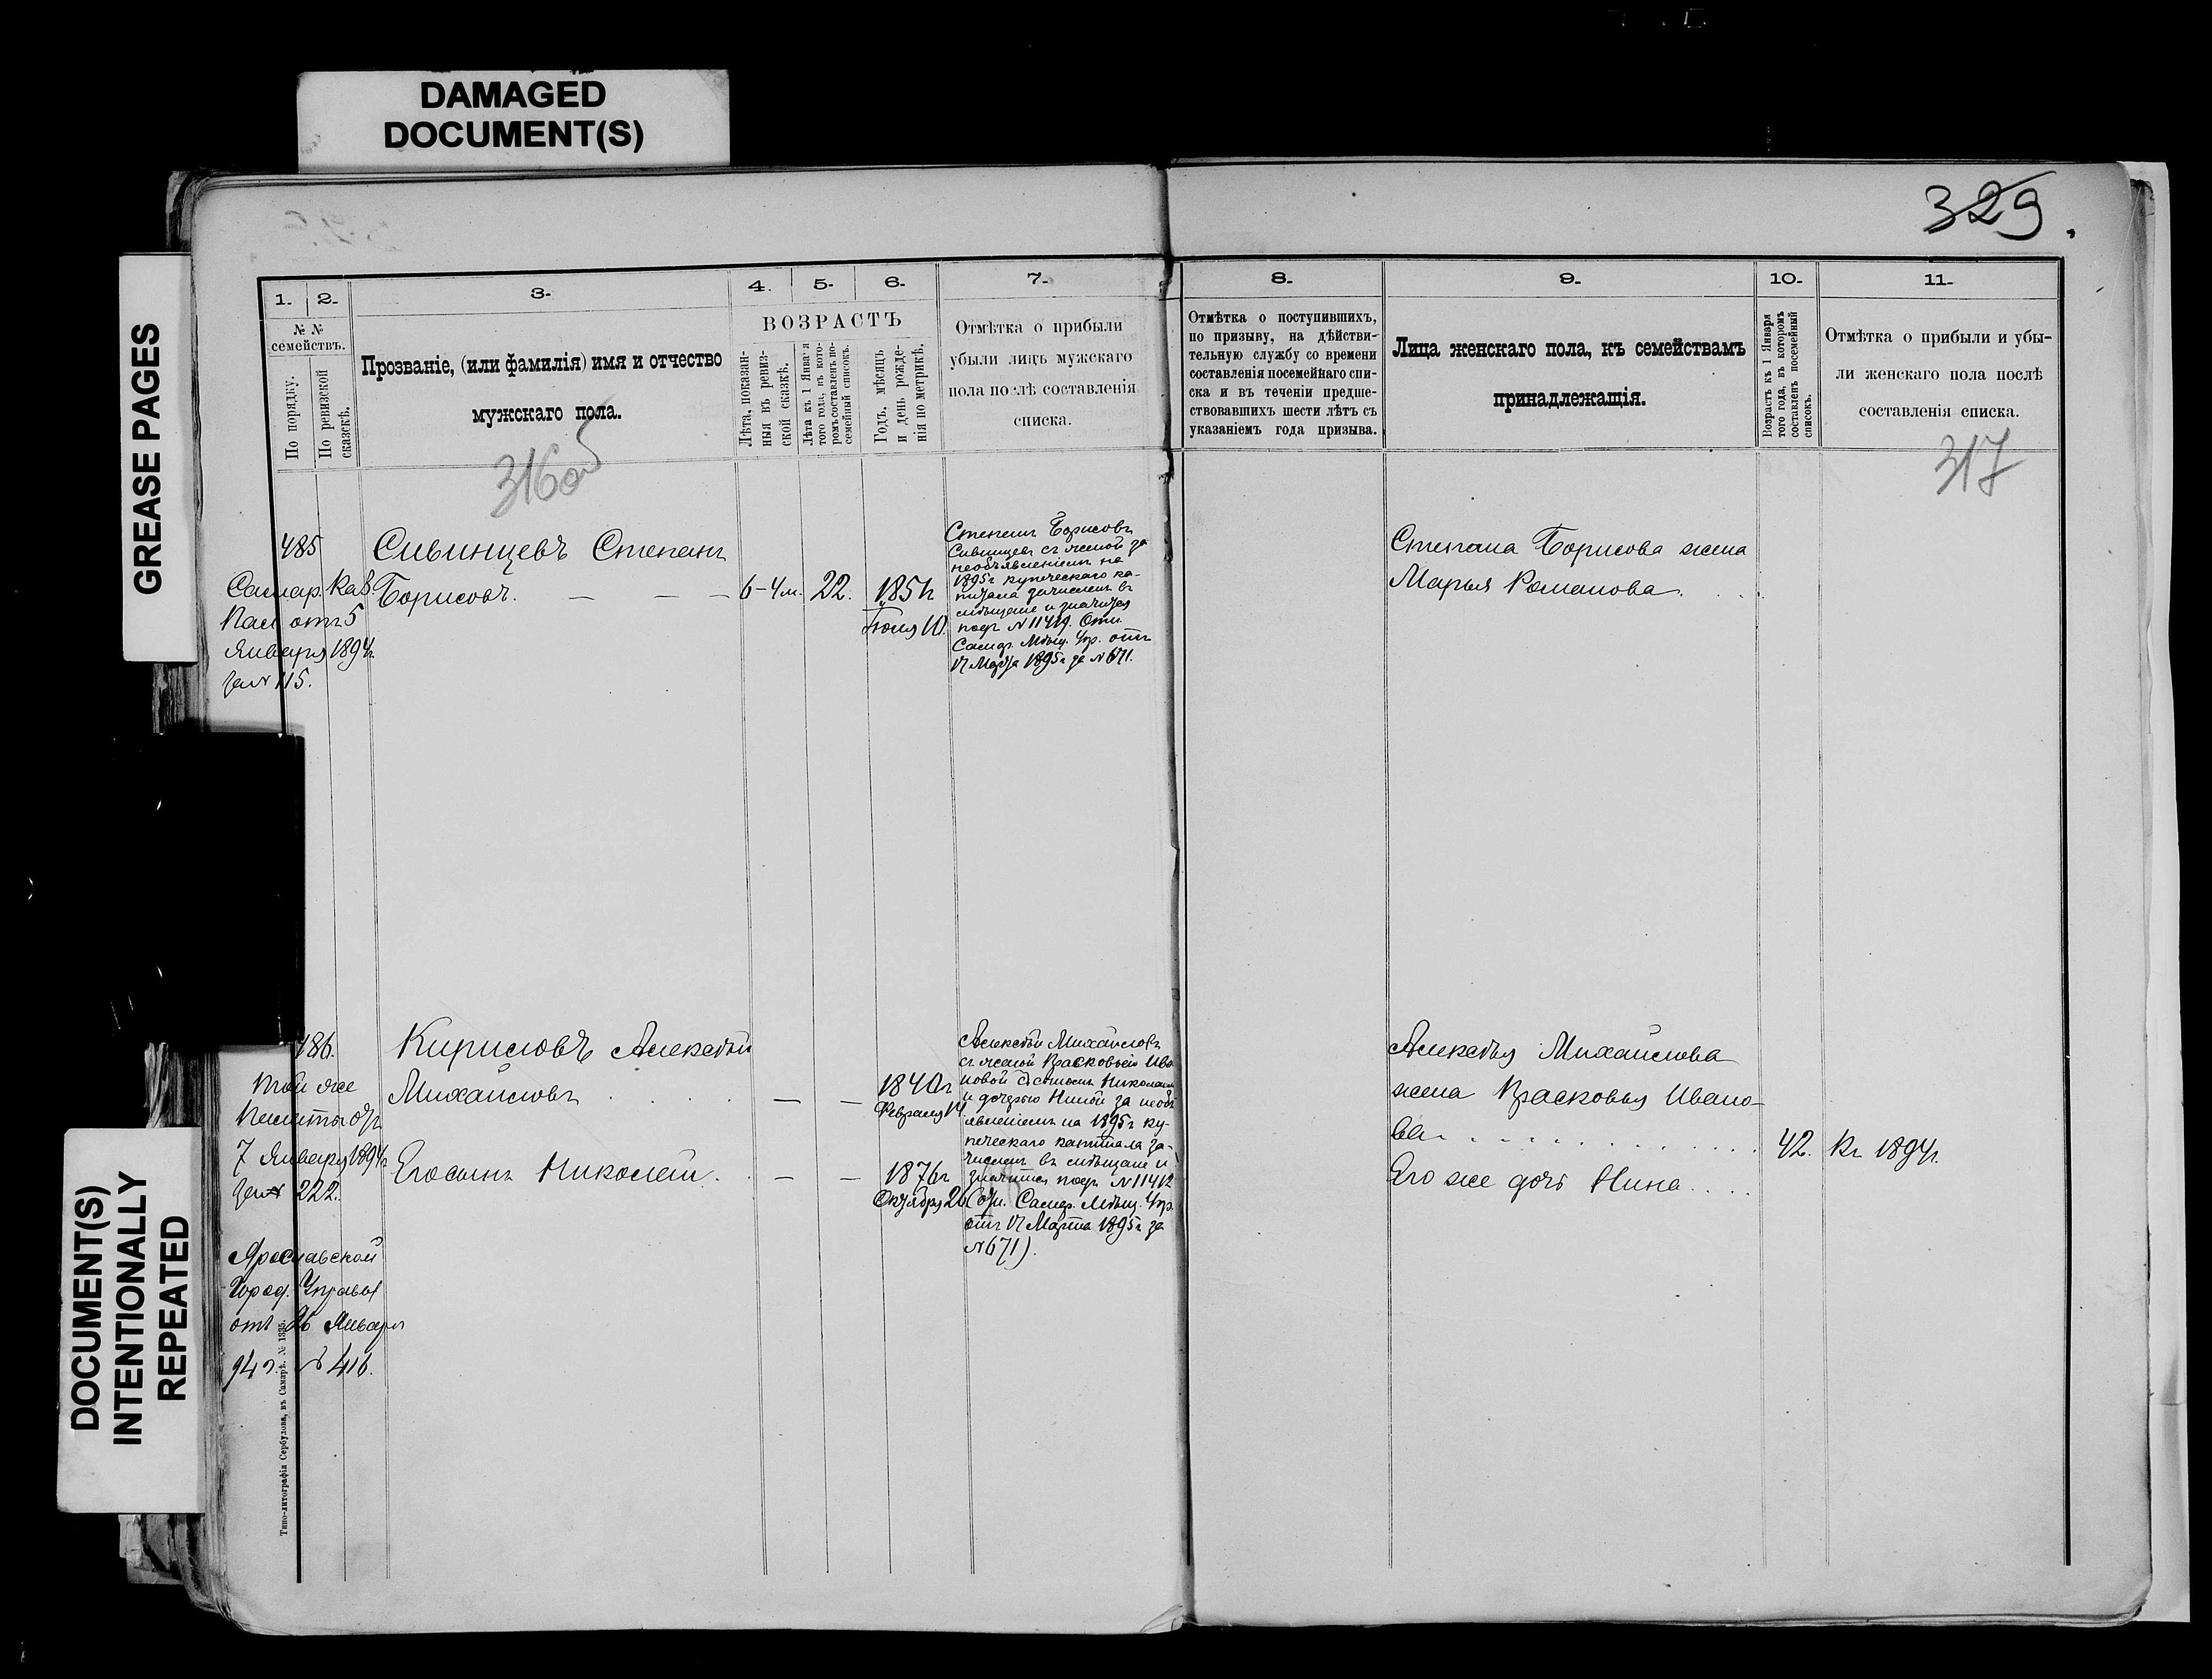 DAMAGED
DOCUMENT(S)
GREASE PAGES
DOCUMENT(S)
INTENTIONALLY
REPEATED
329.
1.
2.
3.
4.
5.
6.
7.
8.
9.
10.
11.
№ №
семействъ.
По порядку.
По ревизской
сказскѣ.
Прозваніе, (или фамилія) имя и отчество
мужскаго пола.
ВОЗРАСТЪ
Лѣта, показан-
ныя въ ревиз-
ской сказкѣ.
Лѣта къ 1 Января
того года, въ кото-
ромъ составленъ по-
семейный списокъ.
Годъ, мѣсяцъ
и день рожде-
нія по метрикѣ.
Отмѣтка о прибыли
убыли лицъ мужскаго
пола послѣ составленія
списка.
Отмѣтка о поступившихъ,
по призыву, на дѣйстви-
тельную службу со времени
составленія посемейнаго спи-
ска и въ теченіи предше-
ствовавшихъ шести лѣтъ съ
указаніемъ года призыва.
Лица женскаго пола, къ семействамъ
принадлежащія.
Возрастъ къ 1 Января
того года, въ которомъ
составленъ посемейный
списокъ.
Отмѣтка о прибыли и убы-
ли женскаго пола послѣ
составленія списка.
316об
317
485
Самар. Каз.
Пал. отъ 5
Января 1894г.
за № 115.
Сивинцевъ Степанъ
Борисовъ.
6-4м.
22.
1851г
Іюня 10.
Степанъ Борисовъ
Сивинцевъ съ женой за
необъявленіемъ на
1895г купеческаго ка-
питала зачисленъ въ
мѣщане и значится
подъ № 11419. Отн.
Самар. Мѣщ. Упр. отъ
17 Марта 1895г за № 671.
Степана Борисова жена
Марья Романова.
486.
Той же
Палаты отъ
7 Января 1894г
за № 222.
Ярославской
Город. Управы
отъ 26 Января
94 г. № 416.
Кириловъ Алексѣй
Михайловъ
1840г
Февраля 14
Его сынъ Николай.
1876г
Октября 26
Алексѣй Михайловъ
съ женой Прасковьею Ива
новой съ сыномъ Николаемъ
и дочерью Ниной за необъ
явленіемъ на 1895г ку-
печескаго капитала за-
численъ въ мѣщане и
значится подъ № 11412
(отн. Самар. Мѣщ. Упр.
отъ 17 Марта 1895г за
№ 671).
Алексѣя Михайлова
жена Прасковья Ивано-
ва
42.
Къ 1894г.
Его же дочь Нина
Типо-литографія Сербулова, въ Самарѣ. № 1335.